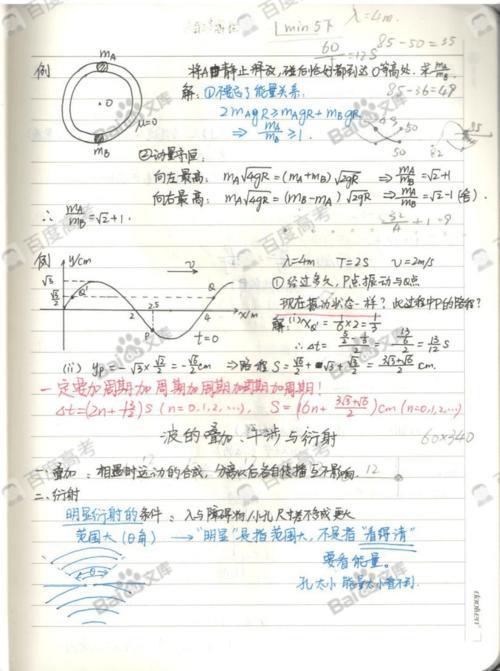 1min 5下
λ=4m.
60/11 = 12S
85-50=35
例
mA
O
μ=0
mB
将A由静止释放,碰后恰好都到达O等高处.求mA/mB.
解:①德忘了能量关系:
85-36=49
2mAgR≥mAgR+mBgR
⇒ mA/mB ≥1.
50
50
②动量守恒:
向左最高: mA√4gR=(mA+mB)√2gR ⇒mA/mB=√2+1
向右最高: mA√4gR=(mB-mA)√2gR ⇒mA/mB=√2-1(舍)
∴ mA/mB=√2+1.
例
y/cm
v
√3
√6/2
Q'
Q
2
2.5
4
x/m
P
t=0
λ=4m T=2S v=2m/s
①经过多久,P点振动与Q点
现在振动状态一样?此过程中P的路程?
解:(i)xQ'=1/6×2=1/3
∴Δt= = 13/6/2 = 13/12 S
(ii) yP=-√3×√2/2=-√6/2cm ⇒路程S=√6/2+√3+√6/2= cm.
一定要加周期加周期加周期加周期加周期!
Δt=(2n+13/12)S(n=0,1,2,…), S= cm(n=0,1,2,…)
波的叠加.干涉与衍射
60×340
一.叠加:相遇时运动的合成,分离以后各自传播互不影响.
12
二.衍射
明显衍射的条件:λ与障碍物/小孔尺寸差不多或更大
范围大(θ角) →"明显"是指范围大,不是指"看得清"
要看能量。
θ
孔太小 能量太小看不到.
百度高考
Bai百度文库